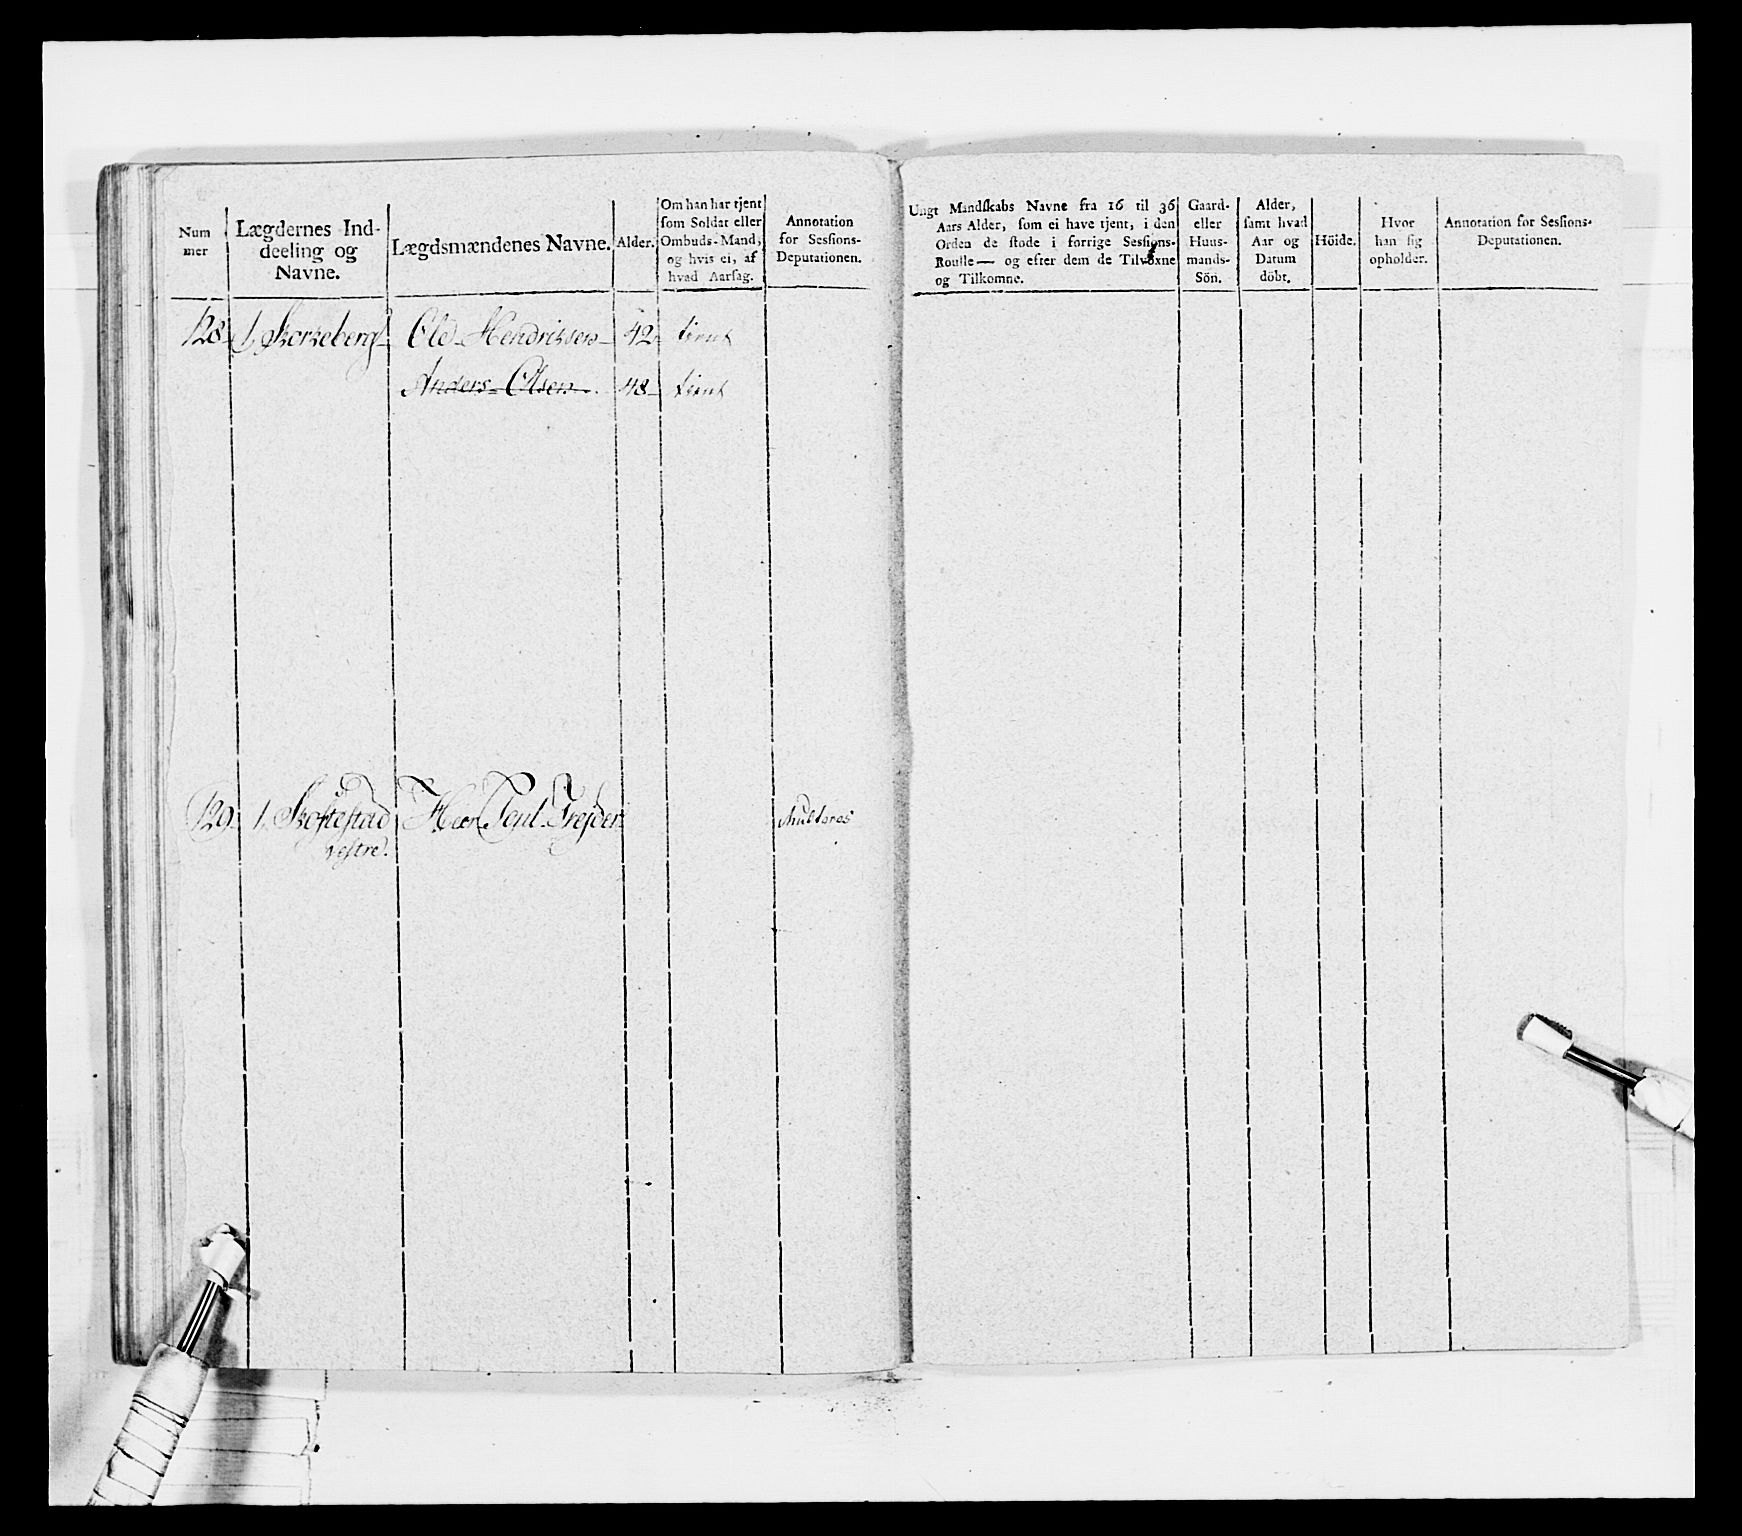 Num
mer
Lægdernes Ind-
deeling og
Navne.
Lægdsmændenes Navne.
Alder.
Om han har tjent
som Soldat eller
Ombuds-Mand,
og hvis ei, af
hvad Aarsag.
Annotation
for Sessions-
Deputationen.
Ungt Mandskabs Navne fra 16 til 36
Aars Alder, som ei have tjent, i den
Orden de stode i forrige Sessions-
Roulle— og efter dem de Tilvoxne
og Tilkomne.
Gaard-
eller
Huus-
mands-
Sön.
Alder,
samt hvad
Aar og
Datum
döbt.
Höide.
Hvor
han sig
opholder.
Annotation for Sessions-
Deputationen.
128 1, Korkeberg Ole Hendriksen 42 tient
Anders Olsen 48 tient
129 1, Skoftestad Herr Poul
vestre.